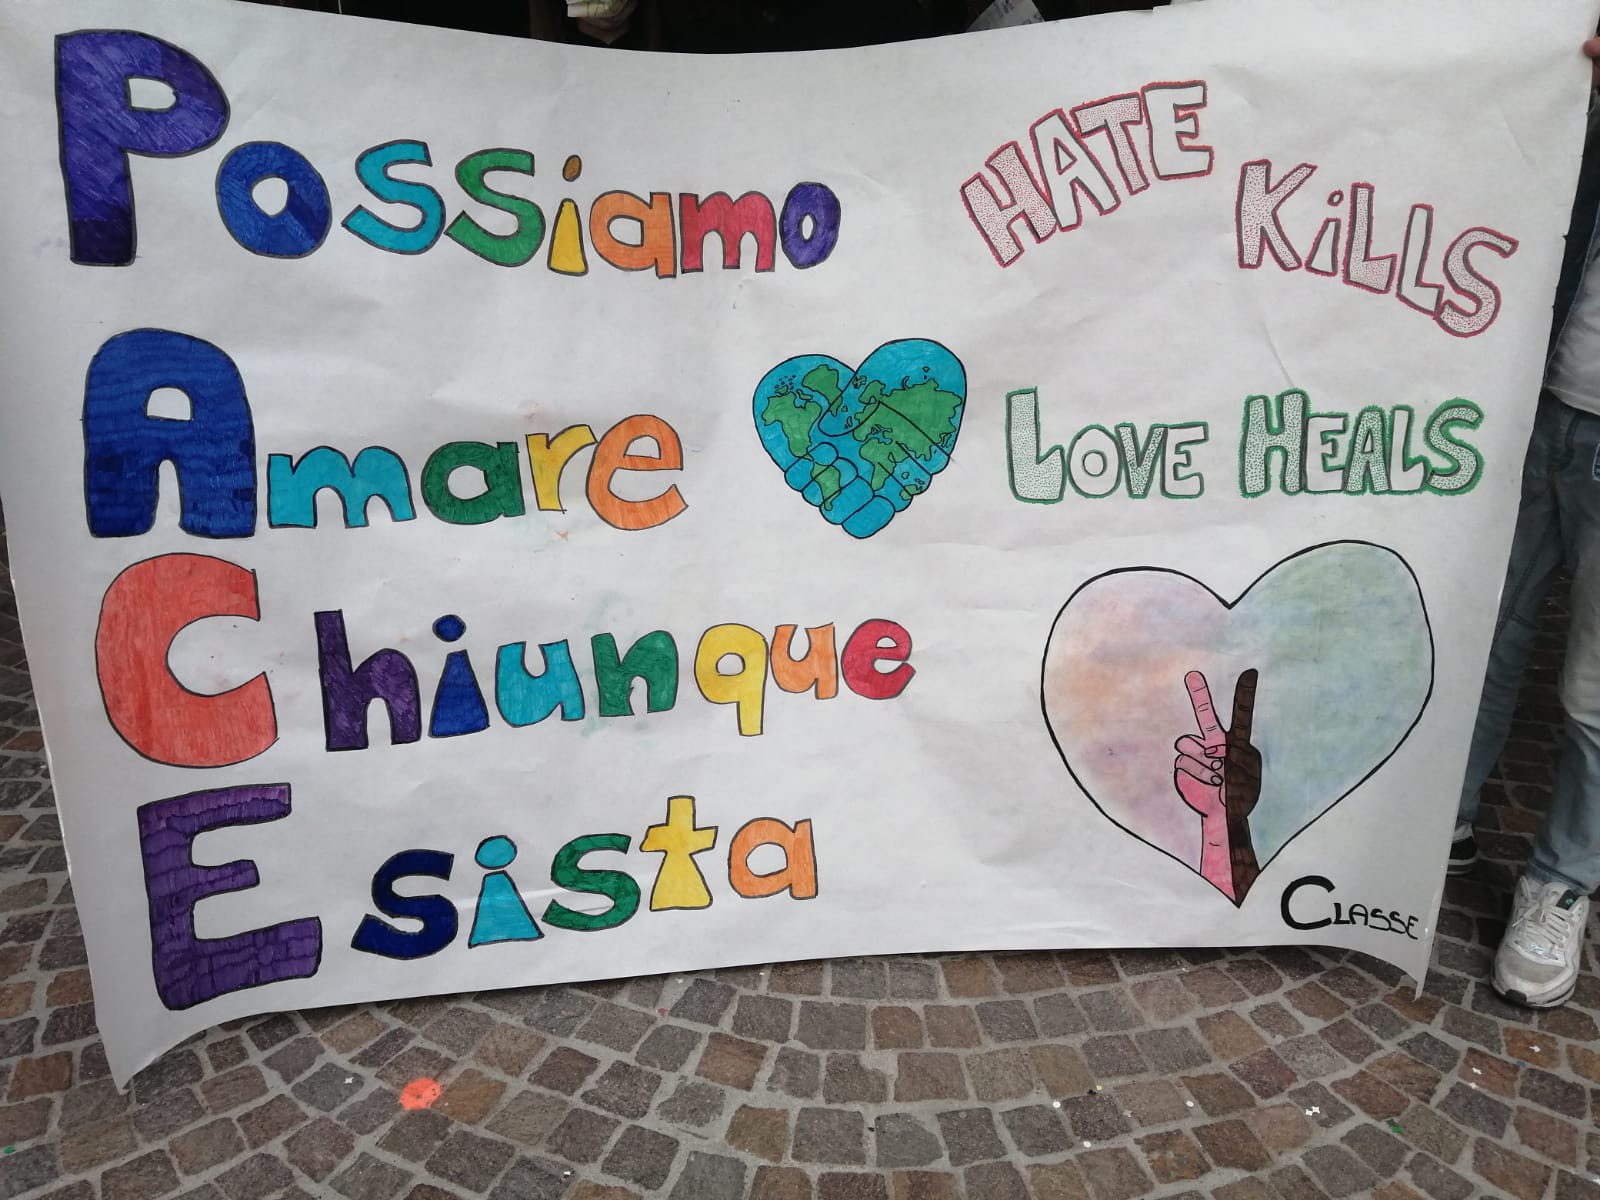 Possiamo
Amare
Chiunque
Esista
HATE
KiLLS
LOVE HEALS
CLASSE